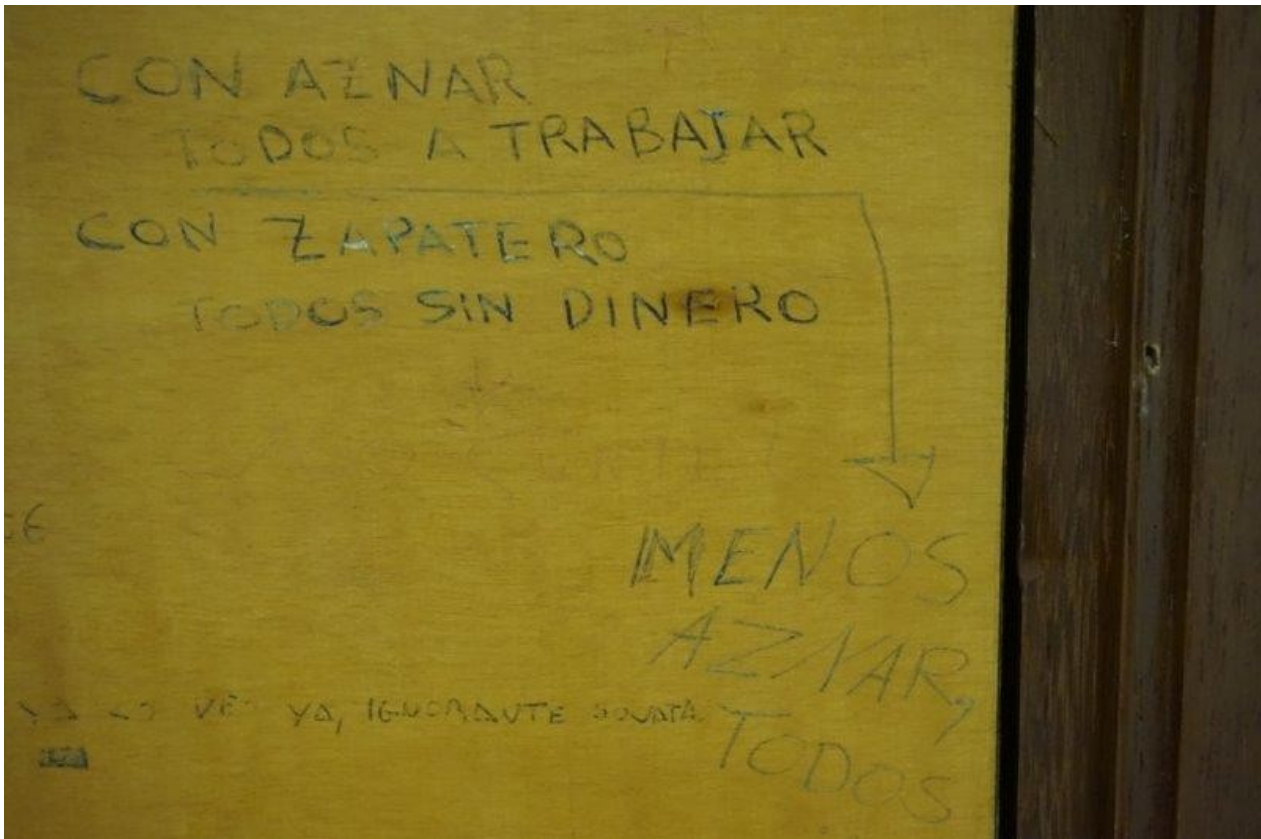 CON AZNAR
TODOS A TRABAJAR
CON ZAPATERO
TODOS SIN DINERO
MENOS
AZNAR,
TODOS
YA, IGNORANTE